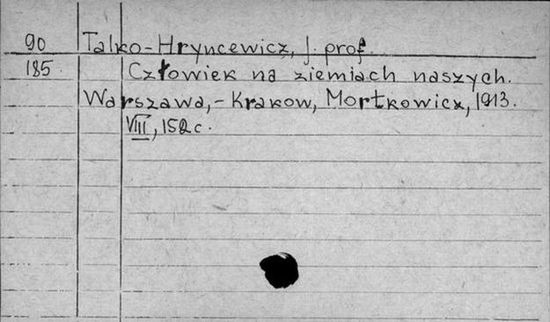 90 Talko-Hryncewicz, J. prof.
185. Człowiek na ziemiach naszych.
Warszawa,-Krakow, Mortkowicz, 1913.
VIII, 152 c.